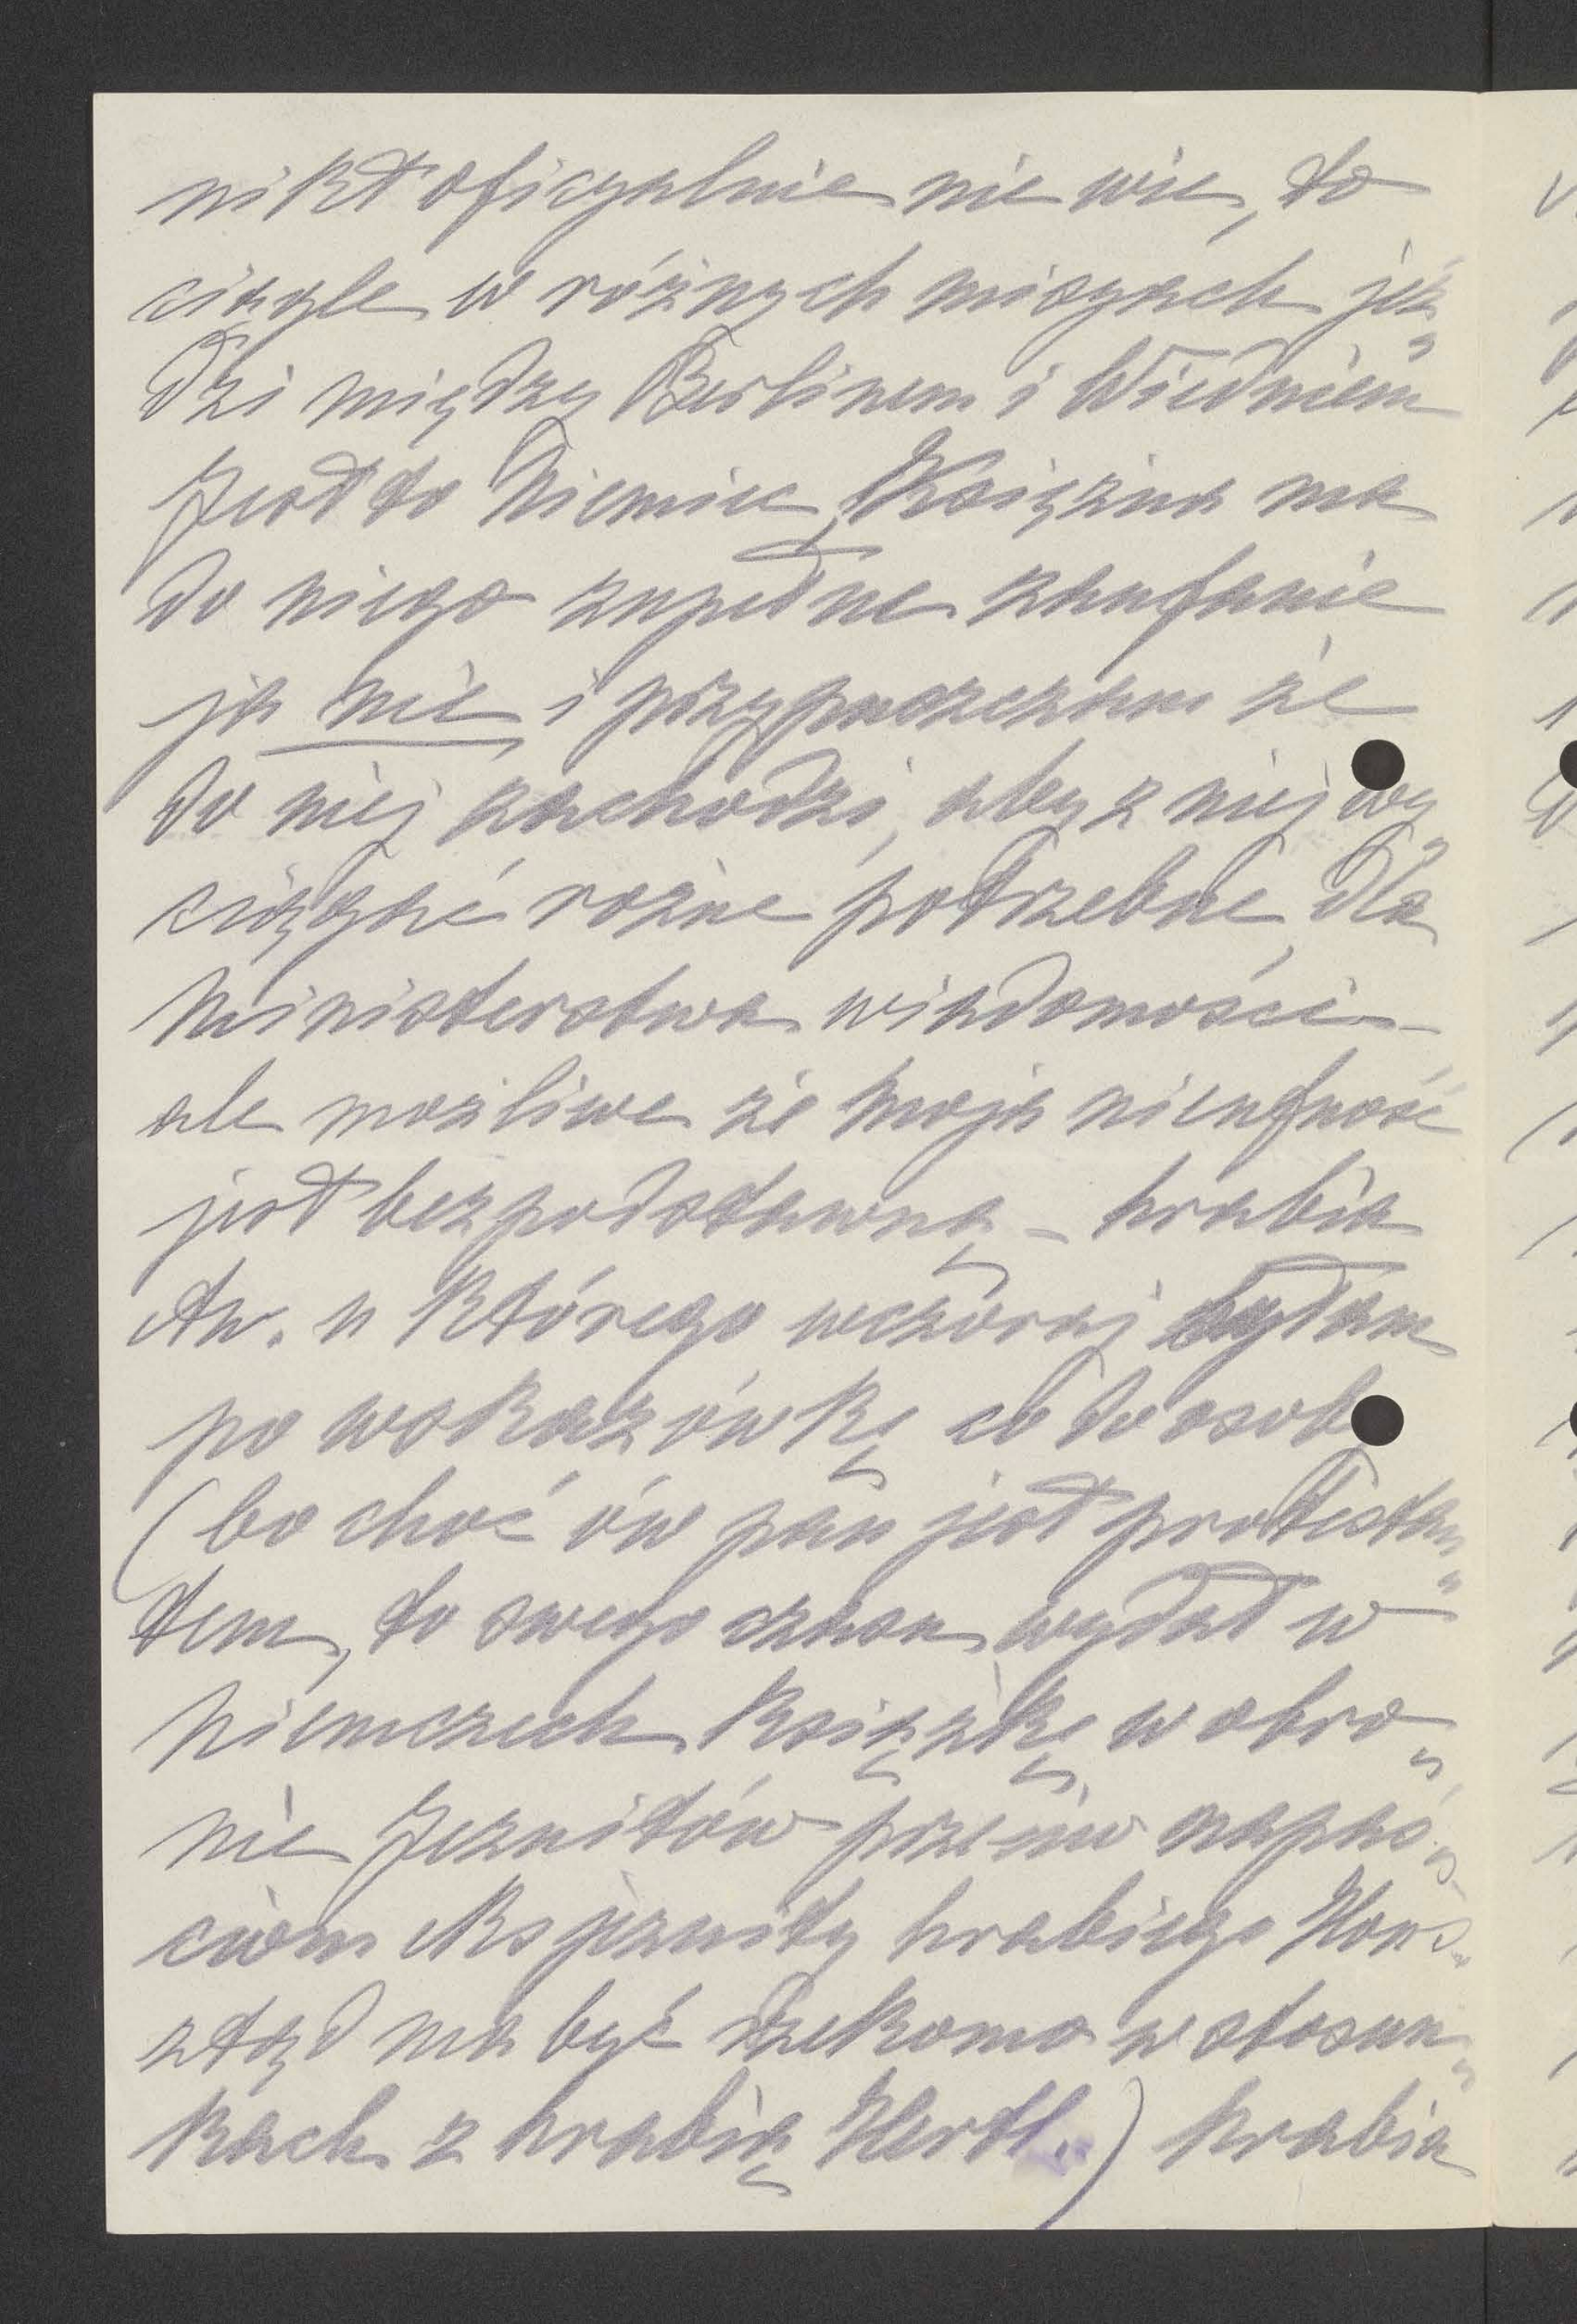 nikt oficyalnie nie wie, to
ciągle w różnych misyach jeź„
dzi między Berlinem i Wiedniem
Jest to Niemiec, Księżna ma
do niego zupełne zaufanie
ja nie i przypuszczam że
do niej zachodzi, aby z niej wy„
ciągać rożne potrzebne dla
Ministerstwa wiadomości –
ale możliwe że moja nieufność
jest bezpodstawną – hrabia
An. u którego wczoraj byłam
po wskazówkę co do osob
(bo choć ów pan jest protestan„
tem, to swego czasu wydał w
Niemczech książkę w obro„
nie Jezuitów przeciw napaś„
ciom eksjezuity hrabiego Hons„
ztąd ma być rzekomo w stosun„
kach z hrabią Hertl.) hrabia